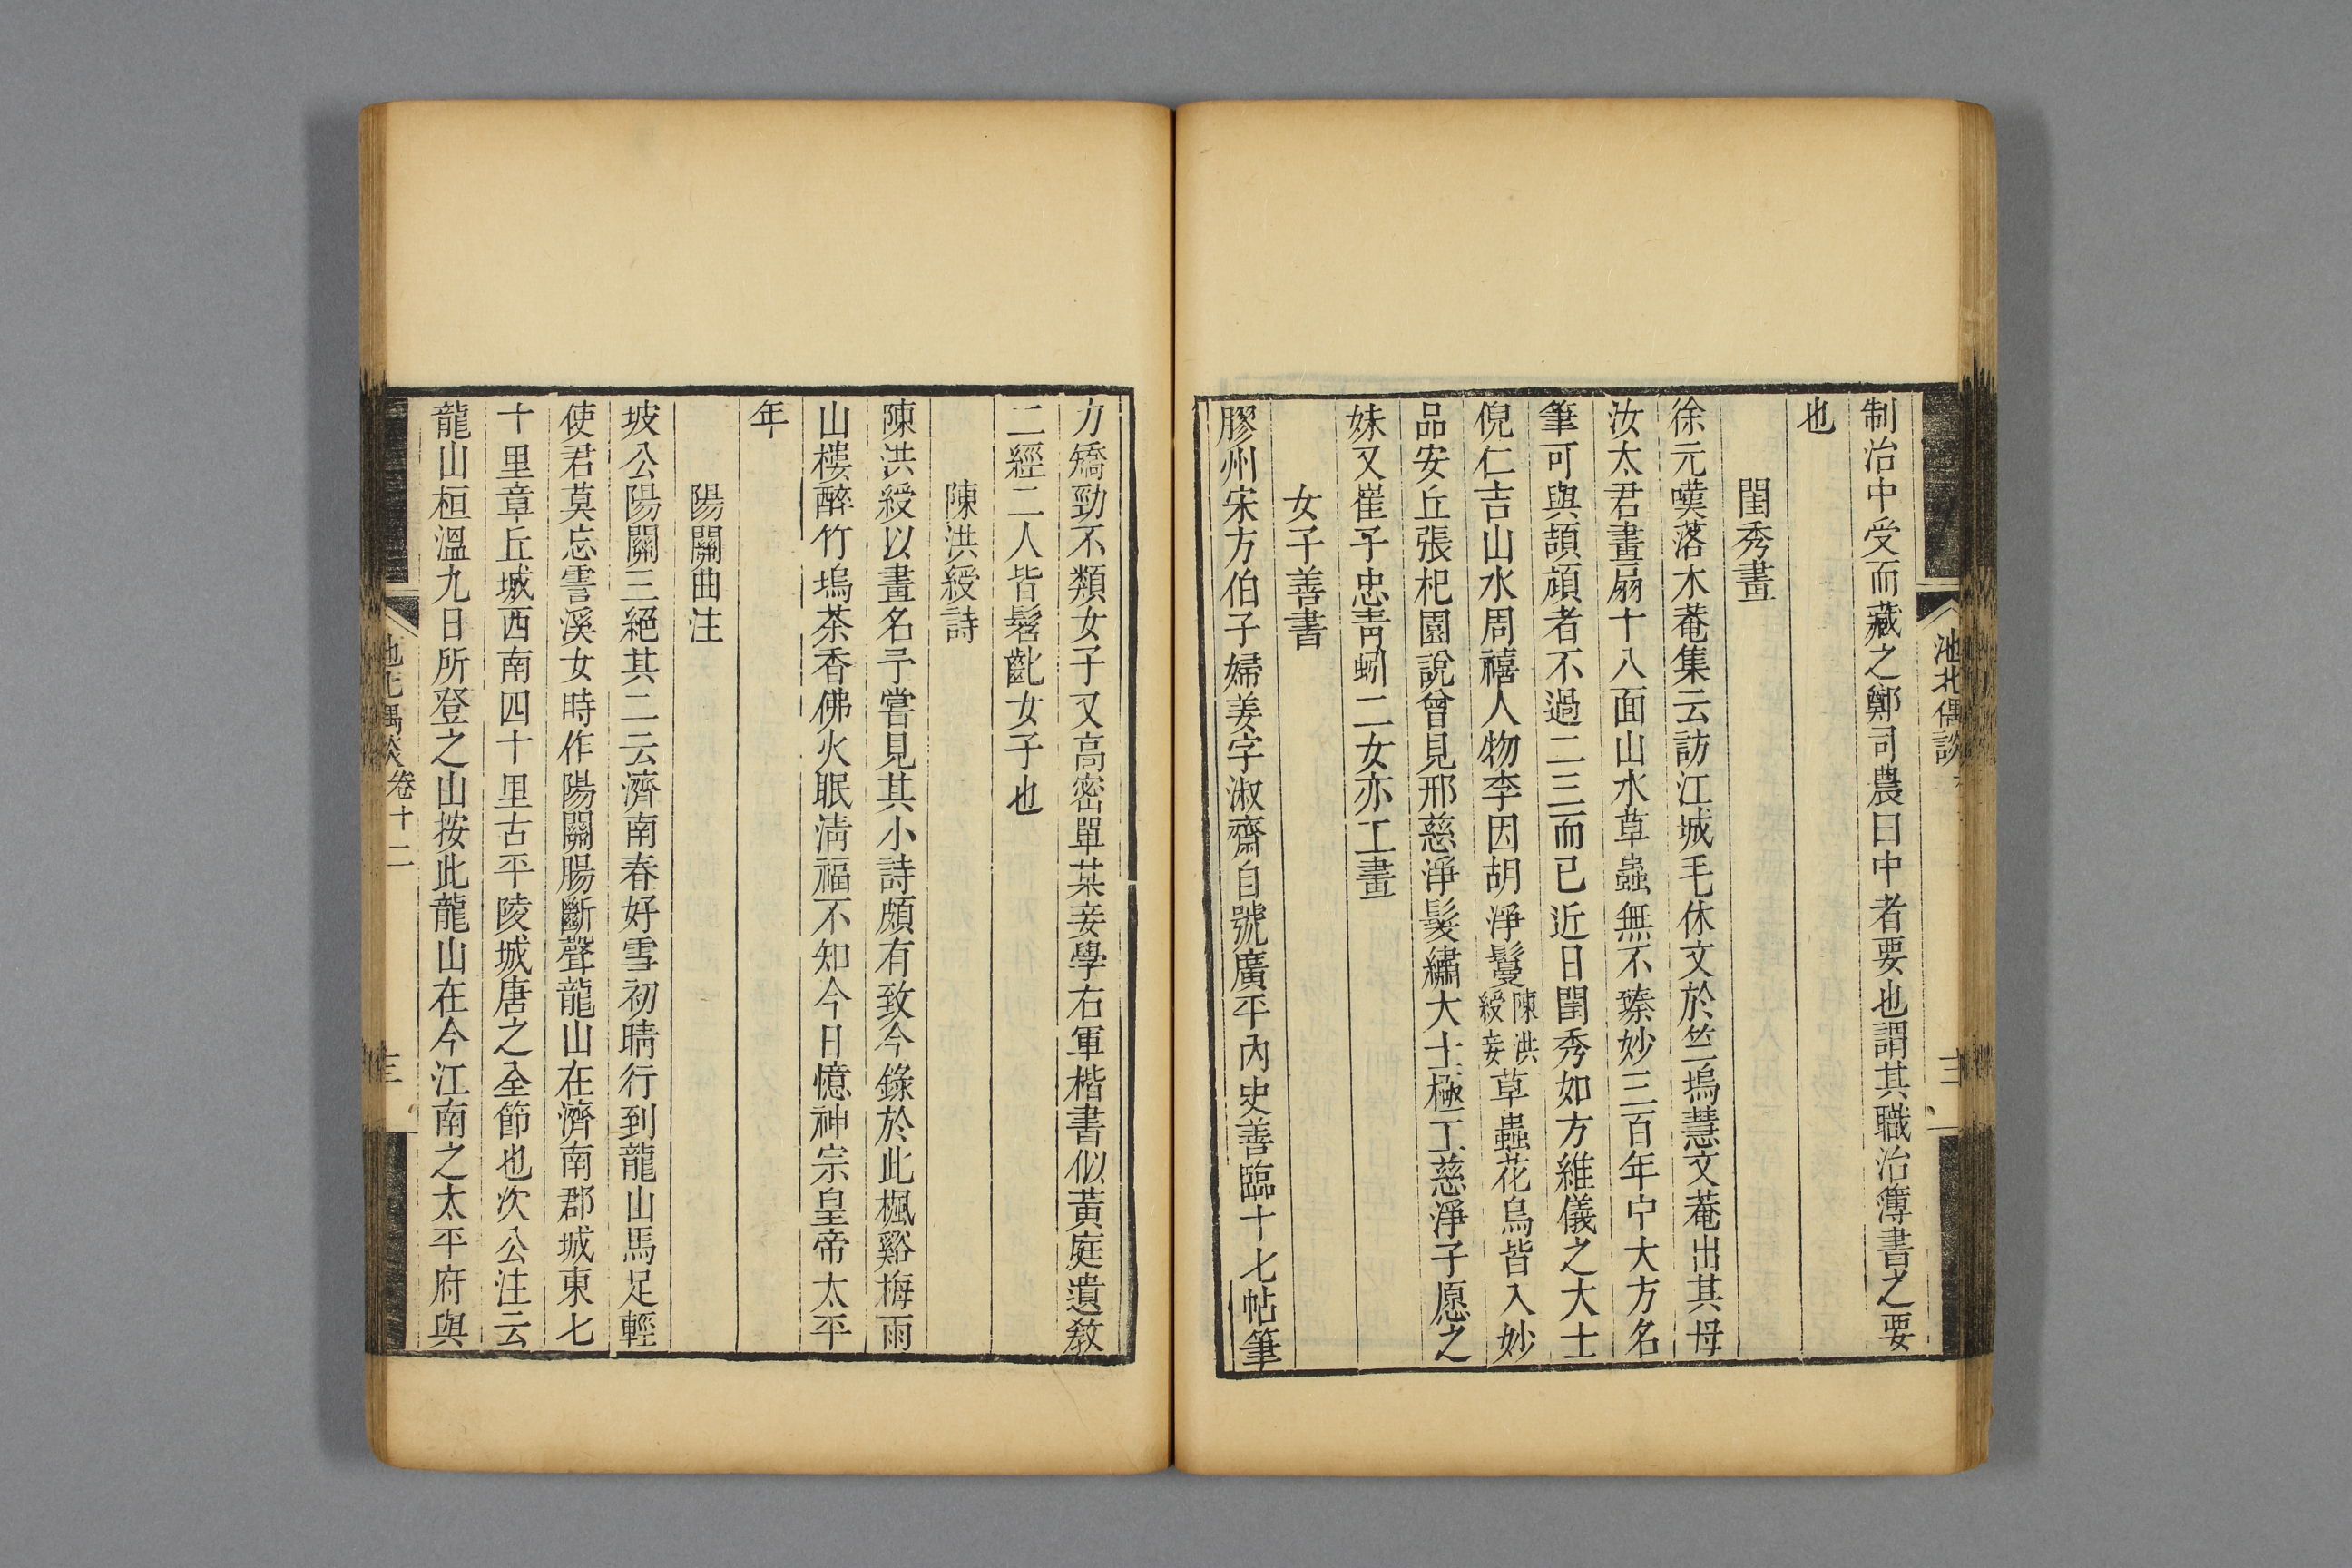 池北偶談
制治中受而藏之鄭司農曰中者要也謂其職治簿書之要
也
閨秀畫
徐元嘆落木菴集云訪江城毛休文於竺塢慧文菴出其母
汝太君畫扇十八面山水草蟲無不臻妙三百年中大方名
筆可與頡頏者不過二三而已近日閨秀如方維儀之大士
倪仁吉山水周禧人物李因胡淨鬘陳洪綬妾草蟲花鳥皆入妙
品安丘張杞園說曾見邢慈淨髮繡大士極工慈淨子愿之
妹又崔子忠靑蚓二女亦工畫
女子善書
膠州宋方伯子婦姜字淑齋自號廣平內史善臨十七帖筆
力矯勁不類女子又高密單某妾學右軍楷書似黃庭遺敎
二經二人皆髫齔女子也
陳洪綬詩
陳洪綬以畫名予嘗見其小詩頗有致今錄於此楓谿梅雨
山樓醉竹塢茶香佛火眠淸福不知今日憶神宗皇帝太平
年
陽關曲注
坡公陽關三絕其二云濟南春好雪初晴行到龍山馬足輕
使君莫忘霅溪女時作陽關腸斷聲龍山在濟南郡城東七
十里章丘城西南四十里古平陵城唐之全節也次公注云
龍山桓溫九日所登之山按此龍山在今江南之太平府與
池北偶談 卷十二